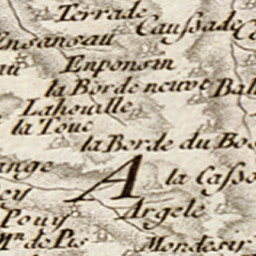 Terrade
Caussade
Ensansau
au Enponsin
la Borde neuve Bal
Lahouille
la Touc
la Borde du Bos
ange
A la Casso
ey
Pouy Argelé
Mⁿ de Pis Mondesir